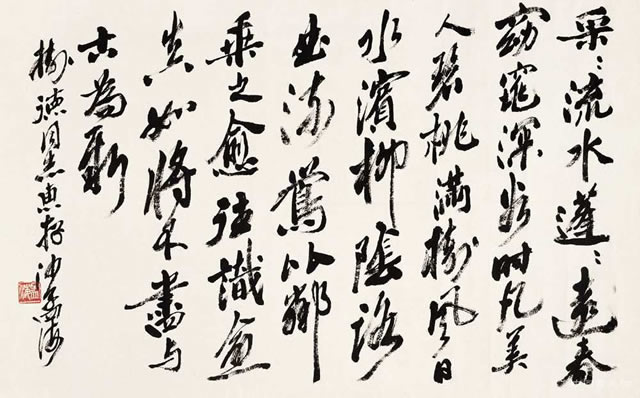 采〻流水蓬〻遠春
窈窕深谷時見美
人碧桃滿樹風日
水濱柳陰路
曲流鶯比鄰
乘之愈往識愈
真如將不盡與
古為新
樹德同志 沙孟海